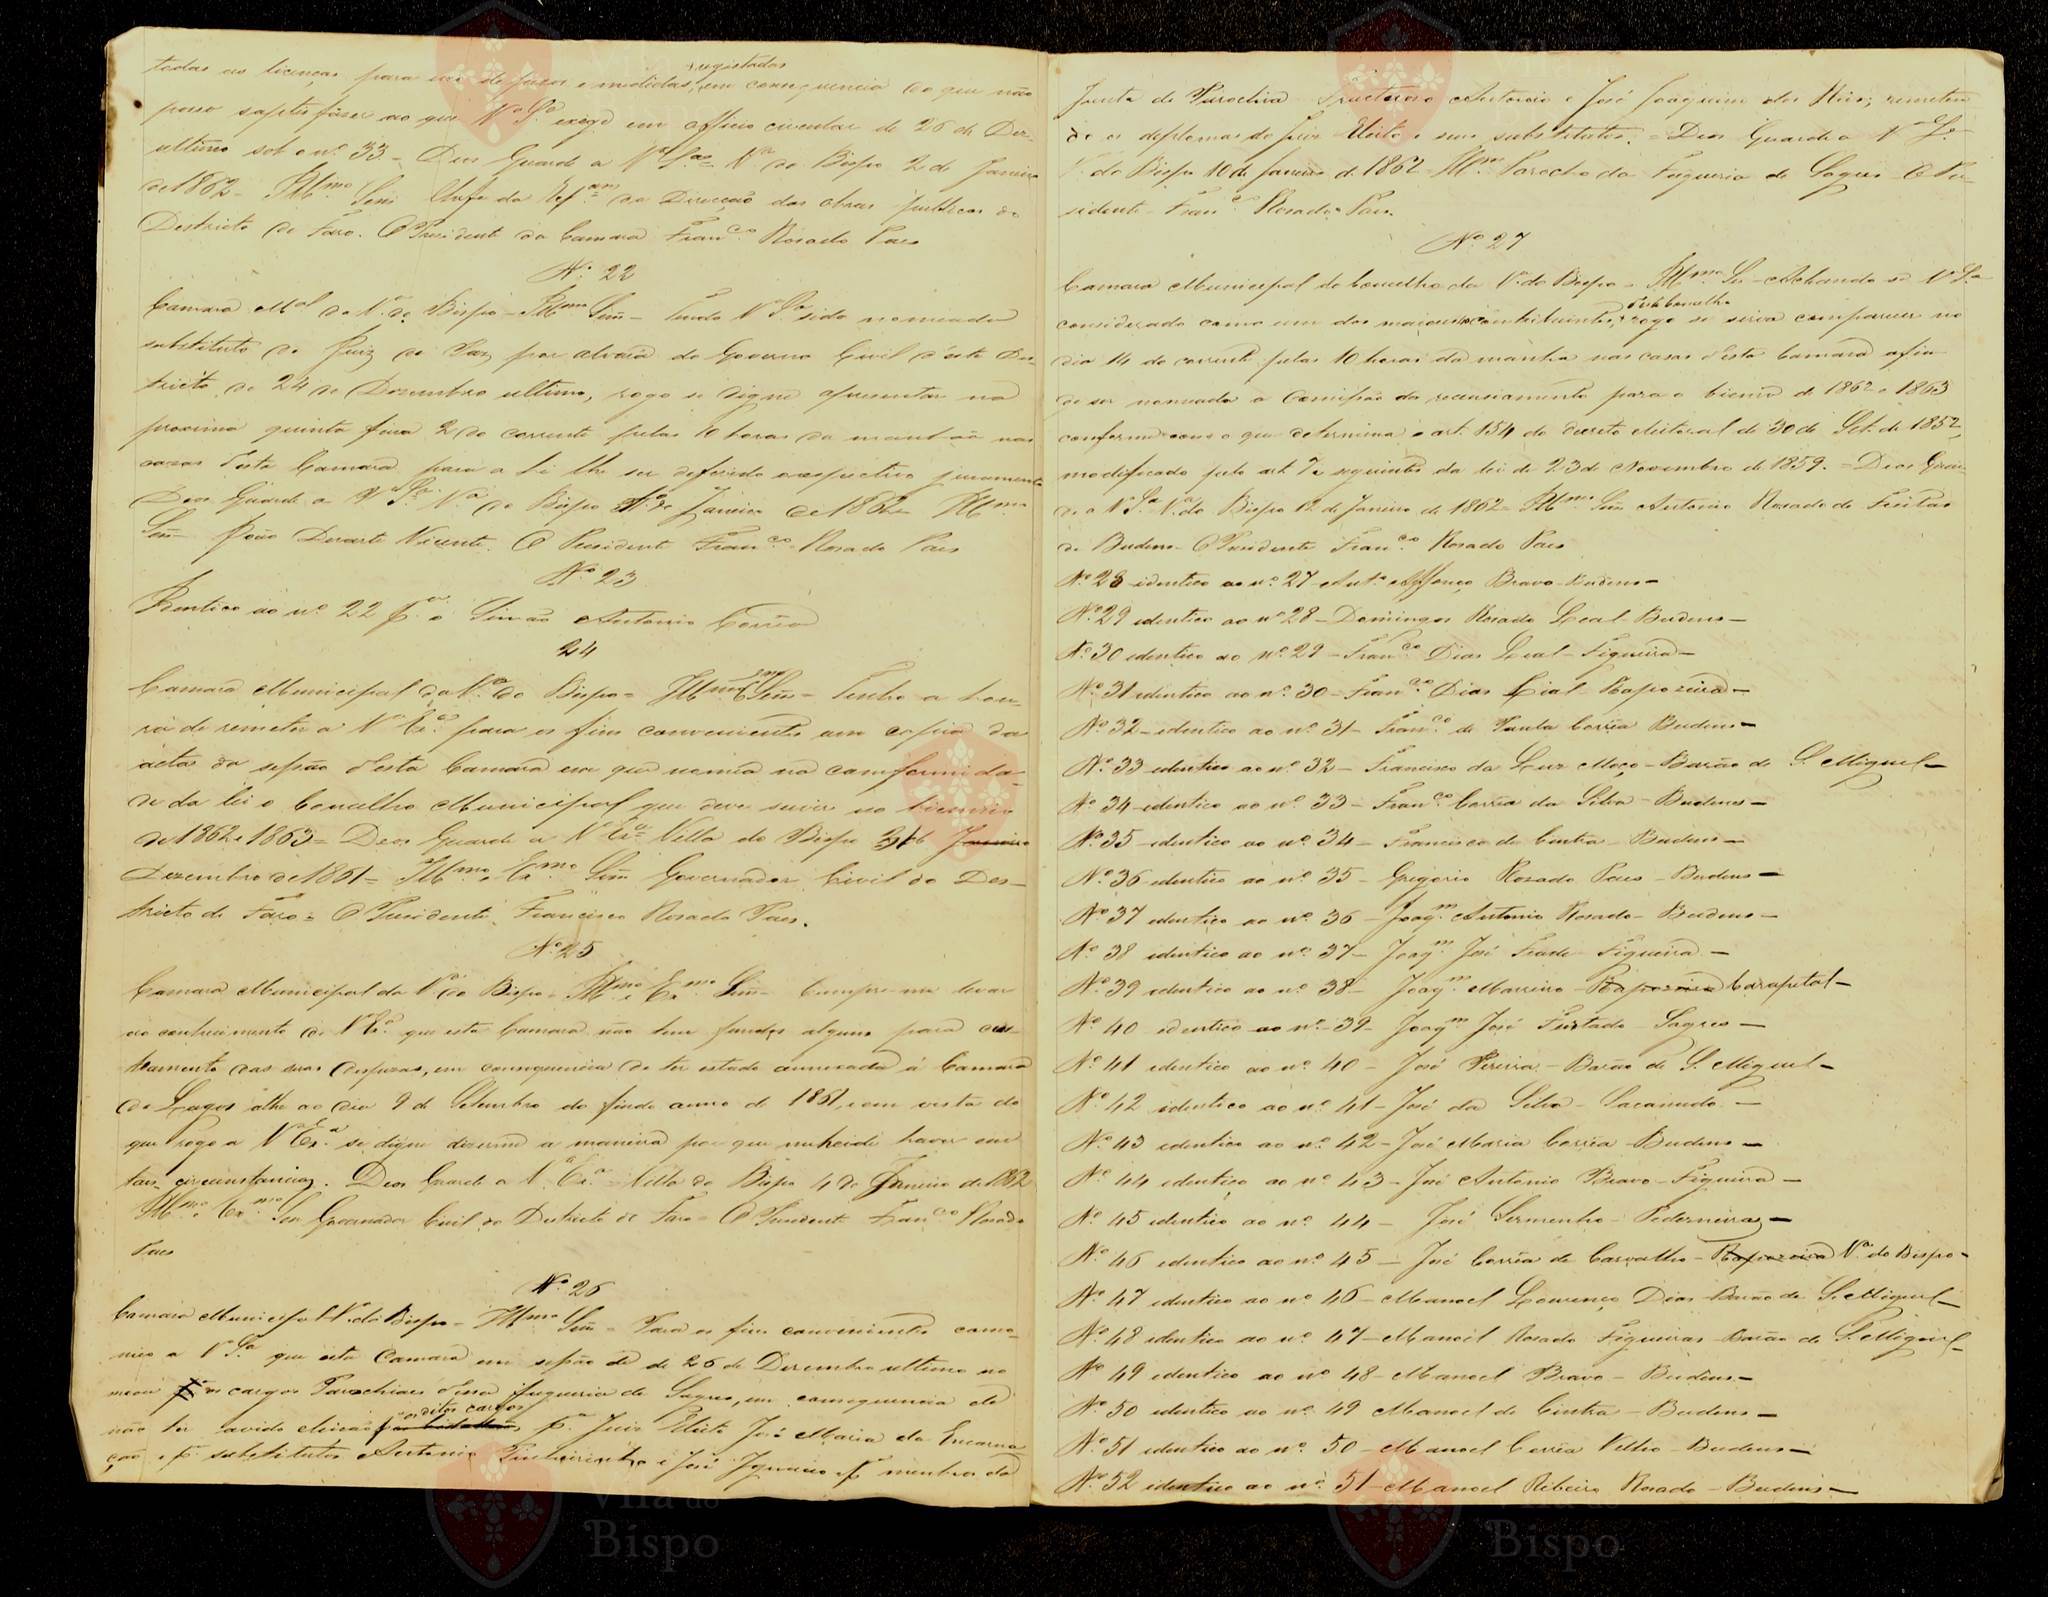 registadas
todas as licenças para uso de pesos e medidas, em consequencia do que não
posso satisfaser ao que V.ª S.ª exege em officio circular de 26 de Dez.
ultimo sob o nº 33 - Deos Guarde a V.ª S.ª V.ª do Bispo 2 de Janeiro
de 1862 - Ill.mo Senr. Chefe da da Direcção das obras publicas do
Destricto de Faro. O Presidente da Camara Fran.co Rosado Paes
Nº 22
Camara M.al da V.ª do Bispo - Ill.mo Senr. - Tendo V.ª S.ª sido nomeado
substituto do Juiz de Paz, por alvará do Governo Civil d'este Des-
tricto, de 24 de Dezembro ultimo, rogo se digne apresentar na
proxima quinta feira 2 do corrente pelas 10 horas da manhã nas
cazas d'esta Camara para ahi lhe ser deferido o respectivo juramento
Deos Guarde a V.ª S.ª V.ª do Bispo de Janeiro de 1862 Ill.mo
Senr. João Duarte Vicente. O Presidente Fran.co Rosado Paes
Nº 23
Identico ao nº 22 p.ª o Simão Antonio Corrêa
24
Camara Municipal da V.ª do Bispo = Ill.mo Ex.mo Senr. = Tenho a hon-
ra de remeter a V.ª Ex.ª para os fins convenientes uma copia da
acta da sessão d'esta Camara em que nomia na comformida-
de da lei o Concelho Municipal que deve survir no biennio
de 1862 e 1863 = Deos Guarde a V.ª Ex.ª Villa do Bispo 31 de Janeiro
Dezembro de 1861 = Ill.mo e Ex.mo Senr. Governador Civil do Des-
tricto de Faro = O Presidente, Francisco Rosado Paes.
Nº 25
Camara Municipal da V.ª do Bispo = Ill.mo e Ex.mo Senr. - Cumpre-me levar
ao conhecimento de V.ª Ex.ª que esta Camara não tem fundos alguns para
das suas despezas, em consequencia de ter estado annexada á Camara
de Lagos athe ao dia 9 de Setembro do findo anno de 1861, e em vista do
que rogo a V.ª Ex.ª se digne dizerme a maneira por que me heide haver em
taes circunstancias. Deos Guarde a V.ª Ex.ª = Villa do Bispo 4 de Janeiro de 1862
Ill.mo e Ex.mo Senr. Governador Civil do Destricto de Faro = O Presidente Fran.co Rosado
Paes
Nº 26
Camara Municipal V.ª do Bispo = Ill.mo Senr. = Para os fins convenientes comu-
nico a V.ª S.ª que esta Camara em sessão de de 26 de Dezembro ultimo no
meou p.ª os cargos Parochiaes d'essa freguesia de Sagres, em consequencia de
os ditos cargos
não ter avido eleição p.ª Juiz Eleito José Maria da Encarna
ção e p.ª substitutos Antonio e José Ignacio e p.ª membros da
Junta de Parochia Fructuoso Antonio e José Joaquim dos Reis, remeten
do os deplomas do Juiz Eleito e seus substitutos. = Deos Guarde a V.ª S.ª
V.ª do Bispo 10 de Janeiro de 1862 - Ill.mo Parocho da Freguesia de Sagres - O Pre
sidente - Fran.co Rosado Paes.
Nº 27
Camara Municipal do Concelho da V.ª do Bispo = Ill.mo Sr. - Achando se V.ª S.ª
deste Concelho
considerado como um dos maiores contribuintes, rogo se sirva comparecer no
dia 14 do corrente pelas 10 horas da manhã nas casas d'esta Camara afim
de ser nomeada a Comissão do recensiamento para o bienio de 1862 e 1863
conforme o que determina o art. 154 do decreto eleitoral de 30 de Set. de 1852,
modificado pelo art. 7 e seguintes da lei de 23 de Novembro de 1859. = Deos Guar-
de a V.ª S.ª V.ª do Bispo 12 de Janeiro de 1862 = Ill.mo Senr. Antonio Rosado de Freitas
de Budens - O Presidente Fran.co Rosado Paes
Nº 28 identico ao nº 27 Ant.º Affonço Bravo - Budens -
Nº 29 identico ao nº 28 - Domingos Rosado Leal - Budens -
Nº 30 identico ao nº 29 - Fran.co Dias Leal - Figueira -
Nº 31 identico ao nº 30 - Fran.co Dias Leal - Rapozeira -
Nº 32 - identico ao nº 31 - Fran.co de Paula Corrêa Budens -
Nº 33 identico ao nº 32 - Francisco da Luz Moço - Barão de S. Miguel -
Nº 34 identico ao nº 33 - Fran.co Corrêa da Silva - Budens -
Nº 35 - identico ao nº 34 - Francisco de Cintra - Budens -
Nº 36 identico ao nº 35 - Gregorio Rosado Paes - Budens -
Nº 37 identico ao nº 36 - Joaq.m Antonio Rosado - Budens -
Nº 38 identico ao nº 37 - Joaq.m José Frade - Figueira -
Nº 39 identico ao nº 38 - Joaq.m Marreiro - Rapozeira Carapetal -
Nº 40 identico ao nº 39 - Joaq.m José Furtado - Sagres -
Nº 41 identico ao nº 40 - José Pereira - Barão de S. Miguel -
Nº 42 identico ao nº 41 - José da Silva - -
Nº 43 identico ao nº 42 - José Maria Corrêa - Budens -
Nº 44 identico ao nº 43 - José Antonio Bravo - Figueira -
Nº 45 identico ao nº 44 - José Sermenho - Pederneiras -
Nº 46 identico ao nº 45 - José Corrêa de Carvalho - Rapozeira V.ª do Bispo -
Nº 47 identico ao nº 46 - Manoel Lourenço Dias - Barão de S. Miguel -
Nº 48 identico ao nº 47 - Manoel Rosado Figueiras - Barão de S. Miguel -
Nº 49 identico ao nº 48 - Manoel Bravo - Budens -
Nº 50 identico ao nº 49 Manoel de Cintra - Budens -
Nº 51 identico ao nº 50 - Manoel Corrêa Velho - Budens -
Nº 52 identico ao nº 51 - Manoel Ribeiro Rosado - Budens -
Vila do
Bispo
Bispo